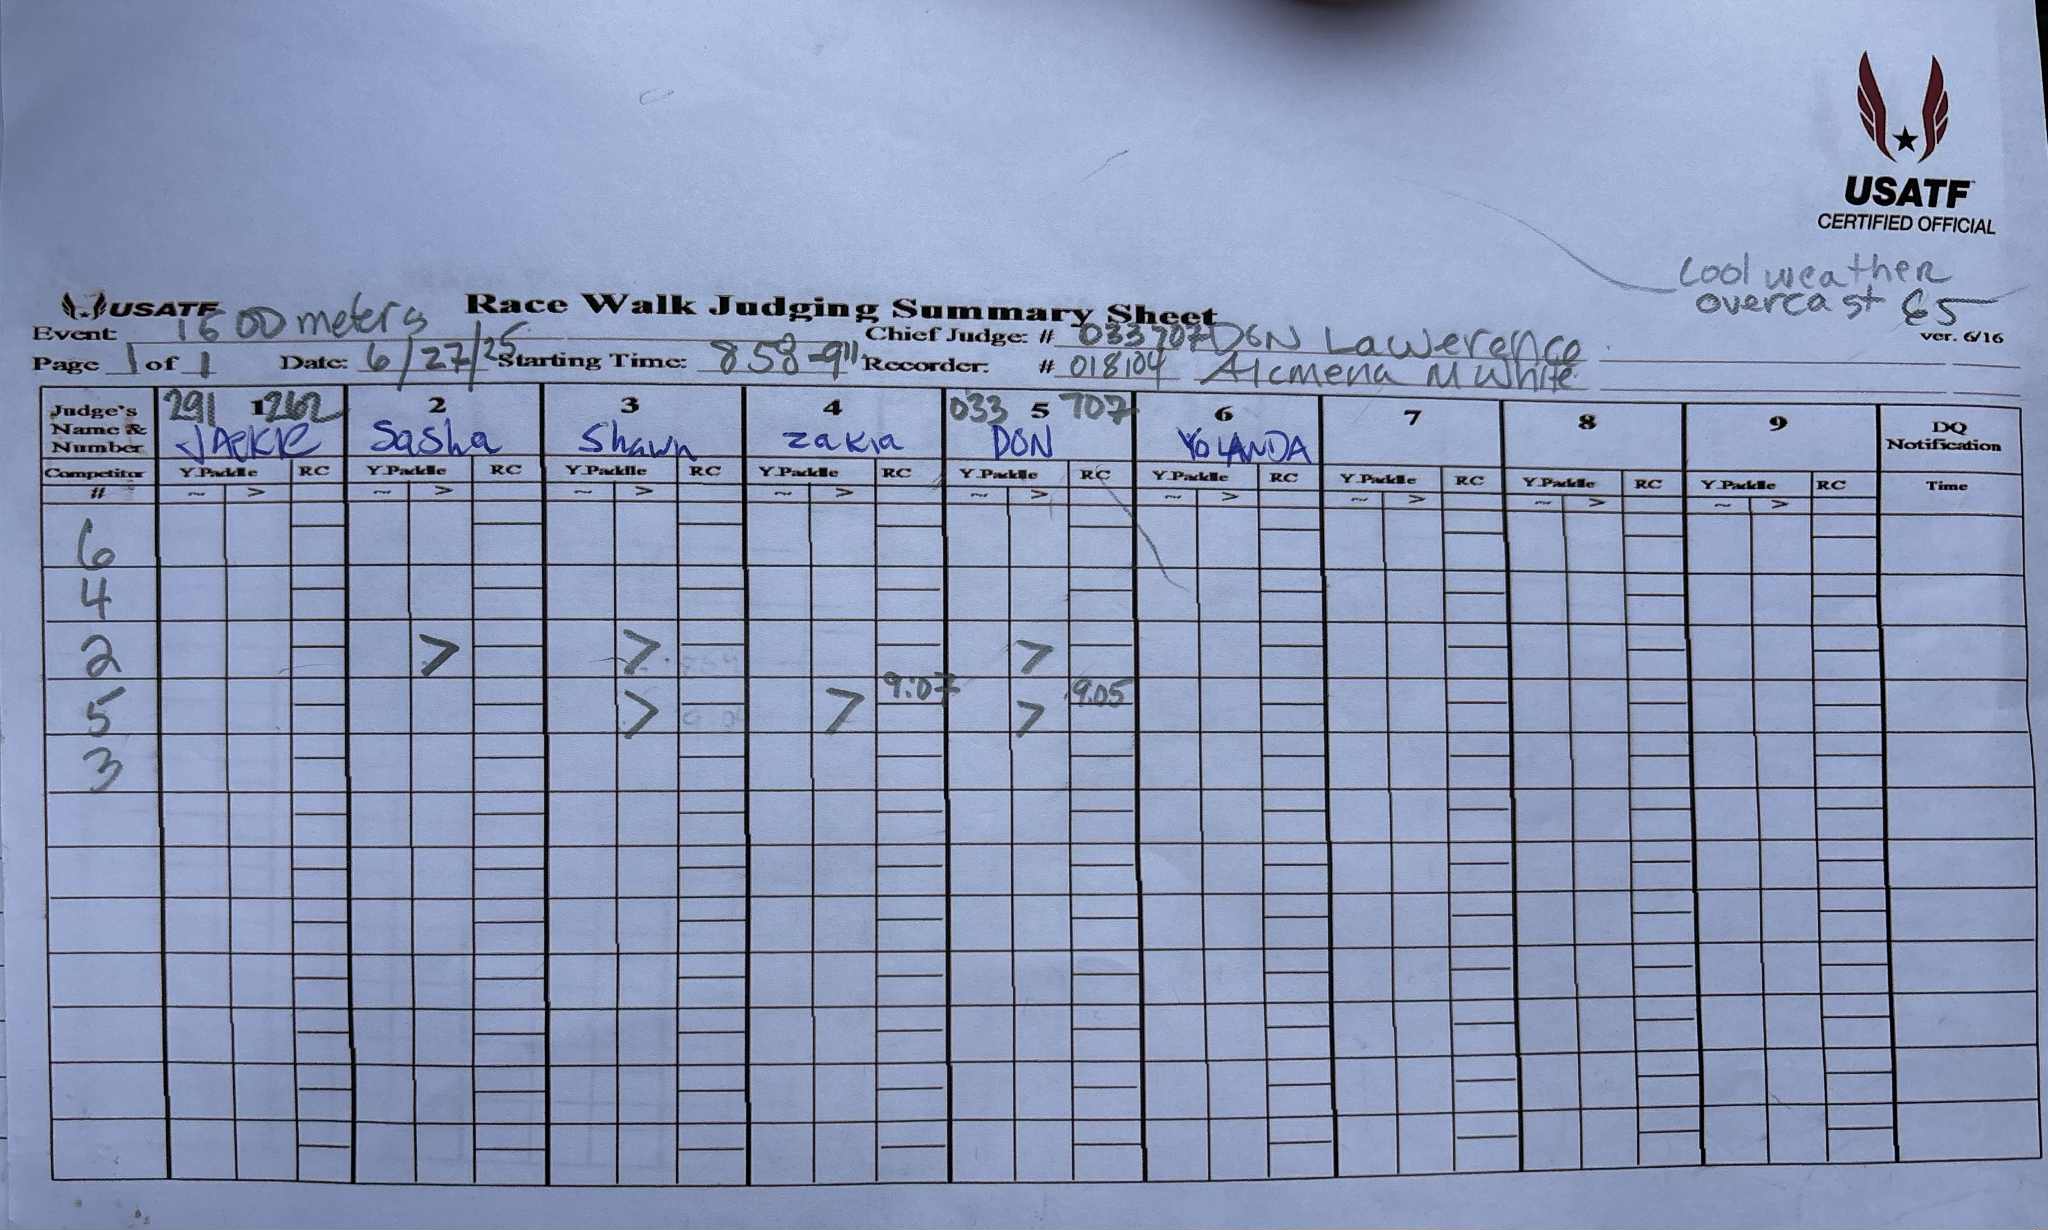 USATF
CERTIFIED OFFICIAL
cool weather
overcast 65
USATF Race Walk Judging Summary Sheet
Event: 1500 meters Chief Judge: # 033707 DON Lawerence ver. 6/16
Page 1 of 1 Date: 6/27/25 Starting Time: 858-911 Recorder: # 018104 Alcmena M White
Judge's Name & Number 291 1 262 JACKIE 2 Sasha 3 Shawn 4 Zakia 033 5 707 DON 6 YOLANDA 7 8 9 DQ Notification
Competitor # Y Paddle RC Y Paddle RC Y Paddle RC Y Paddle RC Y Paddle RC Y Paddle RC Y Paddle RC Y Paddle RC Y Paddle RC Time
~ > ~ > ~ > ~ > ~ > ~ > ~ > ~ > ~ >
6
4
2 > > >
5 > > 9:07 > 9:05
3